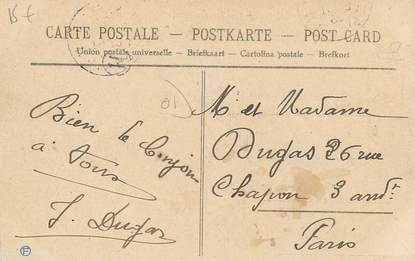 15 €
CARTE POSTALE – POSTKARTE – POST CARD
Union postale universelle – Briefkaart – Cartolina postale – Brefkort
01
Bien le bonjour
à tous
J. Dugas
M et Madame
Dugas 26 rue
Chapon 3 arrdt
Paris
F